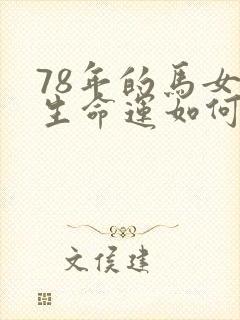 78年的馬女
生命運如何
文侯建